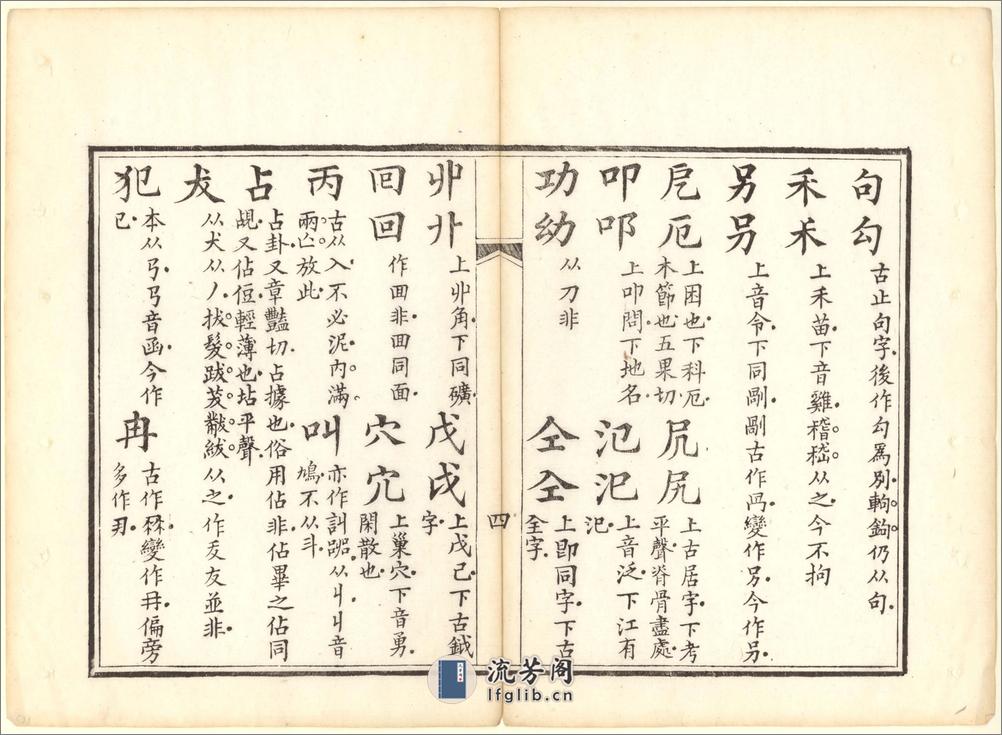 句勾 古止句字後作勾爲別軥鉤仍从句
禾𥝌 上禾苗下音雞稽嵇从之今不拘
另叧 上音令下同剮剮古作冎變作另今作叧
戹厄 上困也下科厄
木節也五果切
尻 上古居字下考
平聲脊骨盡處
叩 上叩問下地名
氾汜 上音泛下江有
汜
功 从刀非
仝 上即同字下古
全字
四
丱卝 上丱角下同礦
戊戉 上戊己下古鉞
字
囘回 作囬非面同面
穴宂 上巢穴下音勇
閑散也
丙 古从入不必泥内滿
兩亡放此
叫 亦作訆嘂从丩丩音
鳩不从斗
占 占卦又章豔切占據也俗用佔非佔畢之佔同
覘又佔侸輕薄也坫平聲
犮 从犬从丿拔髮跋茇黻紱从之作叐友並非
犯 本从𢎘𢎘音函今作
㔾
冉 變作冉偏旁
多作冄
流芳阁
lfglib.cn